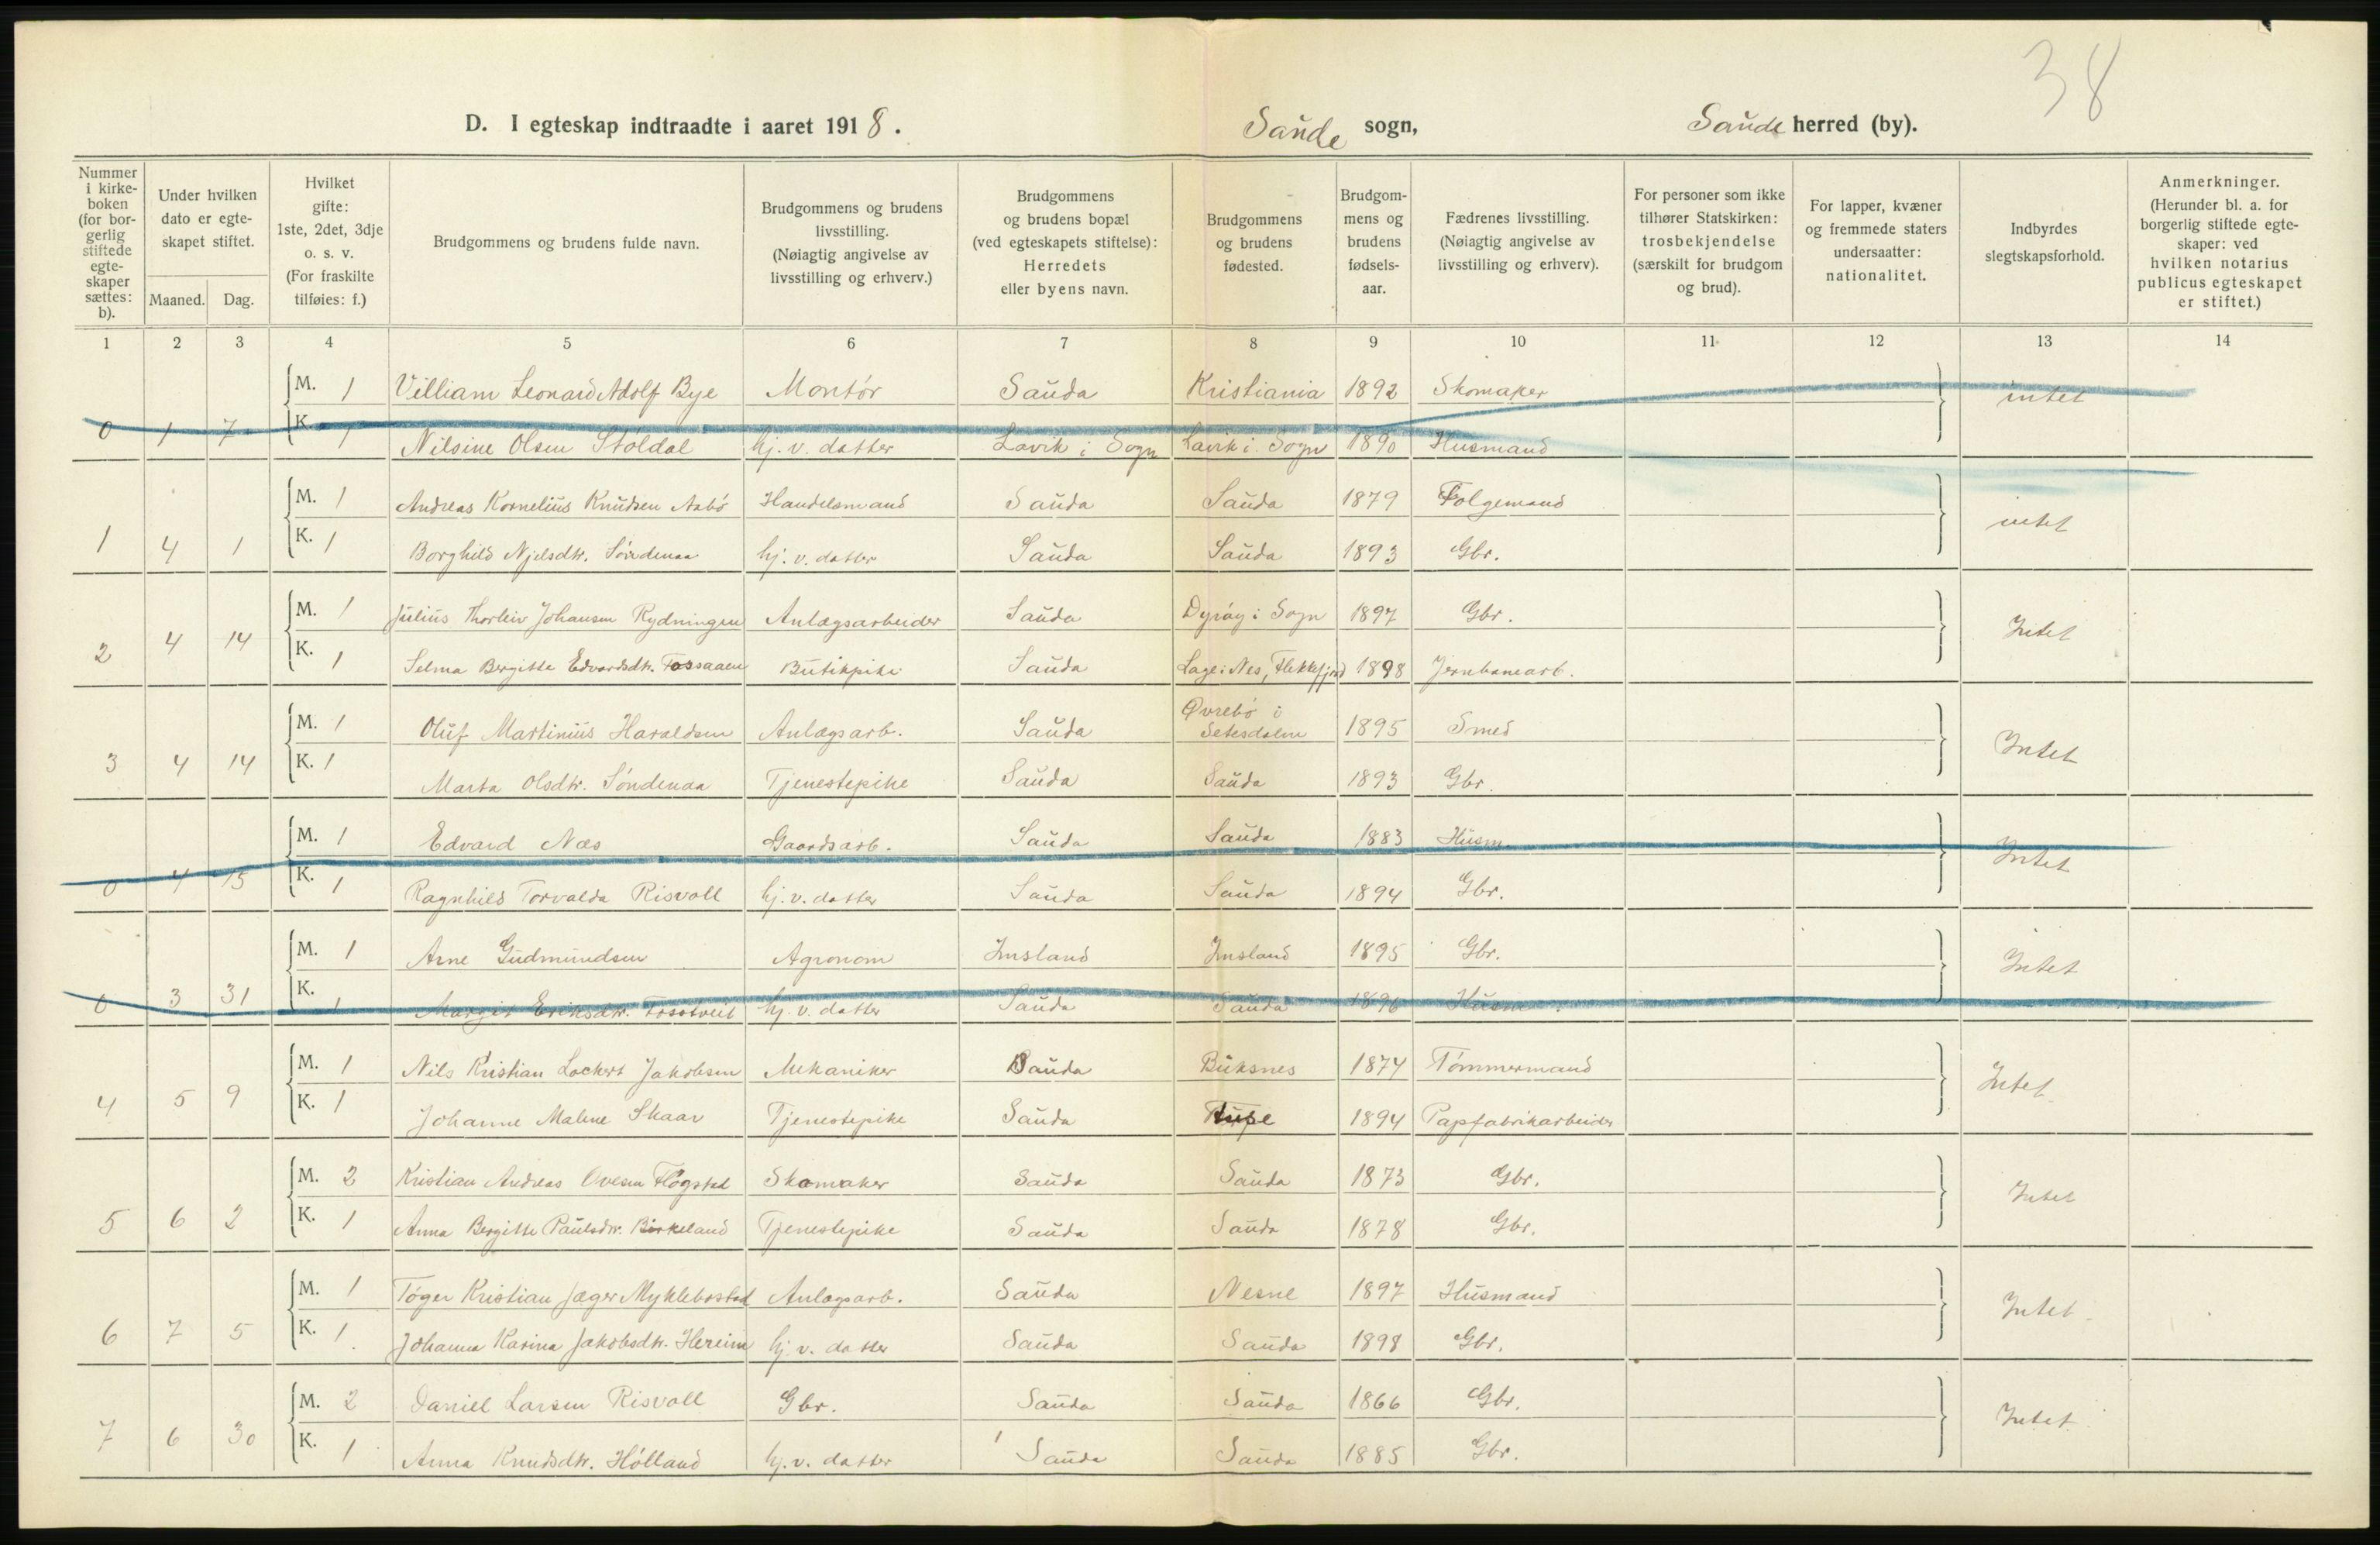 38
D. I egteskap indtraadte i aaret 1918. Saude sogn, Saude herred (by).
Nummer i kirke-boken (for bor-gerlig stiftede egte-skaper sættes: b). Under hvilken dato er egte-skapet stiftet. Maaned. Dag. Hvilket gifte: 1ste, 2det, 3dje o. s. v. (For fraskilte tilføies: f.) Brudgommens og brudens fulde navn. Brudgommens og brudens livsstilling. (Nøiagtig angivelse av livsstilling og erhverv.) Brudgommens og brudens bopæl (ved egteskapets stiftelse): Herredets eller byens navn. Brudgommens og brudens fødested. Brudgom-mens og brudens fødsels-aar. Fædrenes livsstilling. (Nøiagtig angivelse av livsstilling og erhverv). For personer som ikke tilhører Statskirken: trosbekjendelse (særskilt for brudgom og brud). For lapper, kvæner og fremmede staters undersaatter: nationalitet. Indbyrdes slegtskapsforhold. Anmerkninger. (Herunder bl. a. for borgerlig stiftede egte-skaper: ved hvilken notarius publicus egteskapet er stiftet.)
1 2 3 4 5 6 7 8 9 10 11 12 13 14
M. 1 Villiam Leonard Adolf Bye Montör Sauda Kristiania 1892 Skomaker intet
0 1 7 K. 1 Nilsine Olsen Stöldal hj. v. datter Lavik i Sogn Lavik i Sogn 1890 Husmand
M. 1 Andreas Kornelius Knudsen Aabö Handelsmand Sauda Sauda 1879 Folgemand intet
1 4 1 K. 1 Borghild Njelsdtr. Söndenaa hj. v. datter Sauda Sauda 1893 Gbr.
M. 1 Julius Thorleiv Johansen Rydningen Anlægsarbeider Sauda Dyröy i Sogn 1897 Gbr. Intet
2 4 14 K. 1 Selma Bergitte Edvardsdtr. Fossaaen Butikpike Sauda Lage i Nes, Flekkefjord 1898 Jernbanearb.
M. 1 Oluf Martinius Haraldsen Anlægsarb. Sauda Øvrebö i Setesdalen 1895 Smed Intet
3 4 14 K. 1 Marta Olsdtr. Söndenaa Tjenestepike Sauda Sauda 1893 Gbr.
M. 1 Edvard Næs Gaardsarb. Sauda Sauda 1883 Husm. Intet
0 4 15 K. 1 Ragnhild Torvalda Risvoll hj. v. datter Sauda Sauda 1894 Gbr.
M. 1 Arne Gudmundsen Agronom Imsland Imsland 1895 Gbr. Intet
0 3 31 K. 1 Margit Eriksdtr. Fosstveit hj. v. datter Sauda Sauda 1896 Husm.
M. 1 Nils Kristian Lockert Jakobsen Mekaniker Sauda Buksnes 1874 Tömmermand Intet
4 5 9 K. 1 Johanne Malene Skaar Tjenestepike Sauda 1894 Papfabrikarbeider
M. 2 Kristian Andreas Ovesen Flögstad Skomaker Sauda Sauda 1873 Gbr. Intet
5 6 2 K. 1 Anna Bergitte Paulsdtr. Birkeland Tjenestepike Sauda Sauda 1878 Gbr.
M. 1 Töger Kristian Jæger Myklebostad Anlægsarb. Sauda Nesne 1897 Husmand Intet
6 7 5 K. 1 Johanna Karina Jakobsdtr. Hereim hj. v. datter Sauda Sauda 1898 Gbr.
M. 2 Daniel Larsen Risvoll Gbr. Sauda Sauda 1866 Gbr. Intet
7 6 30 K. 1 Anna Knudsdtr. Hölland hj. v. datter Sauda Sauda 1885 Gbr.